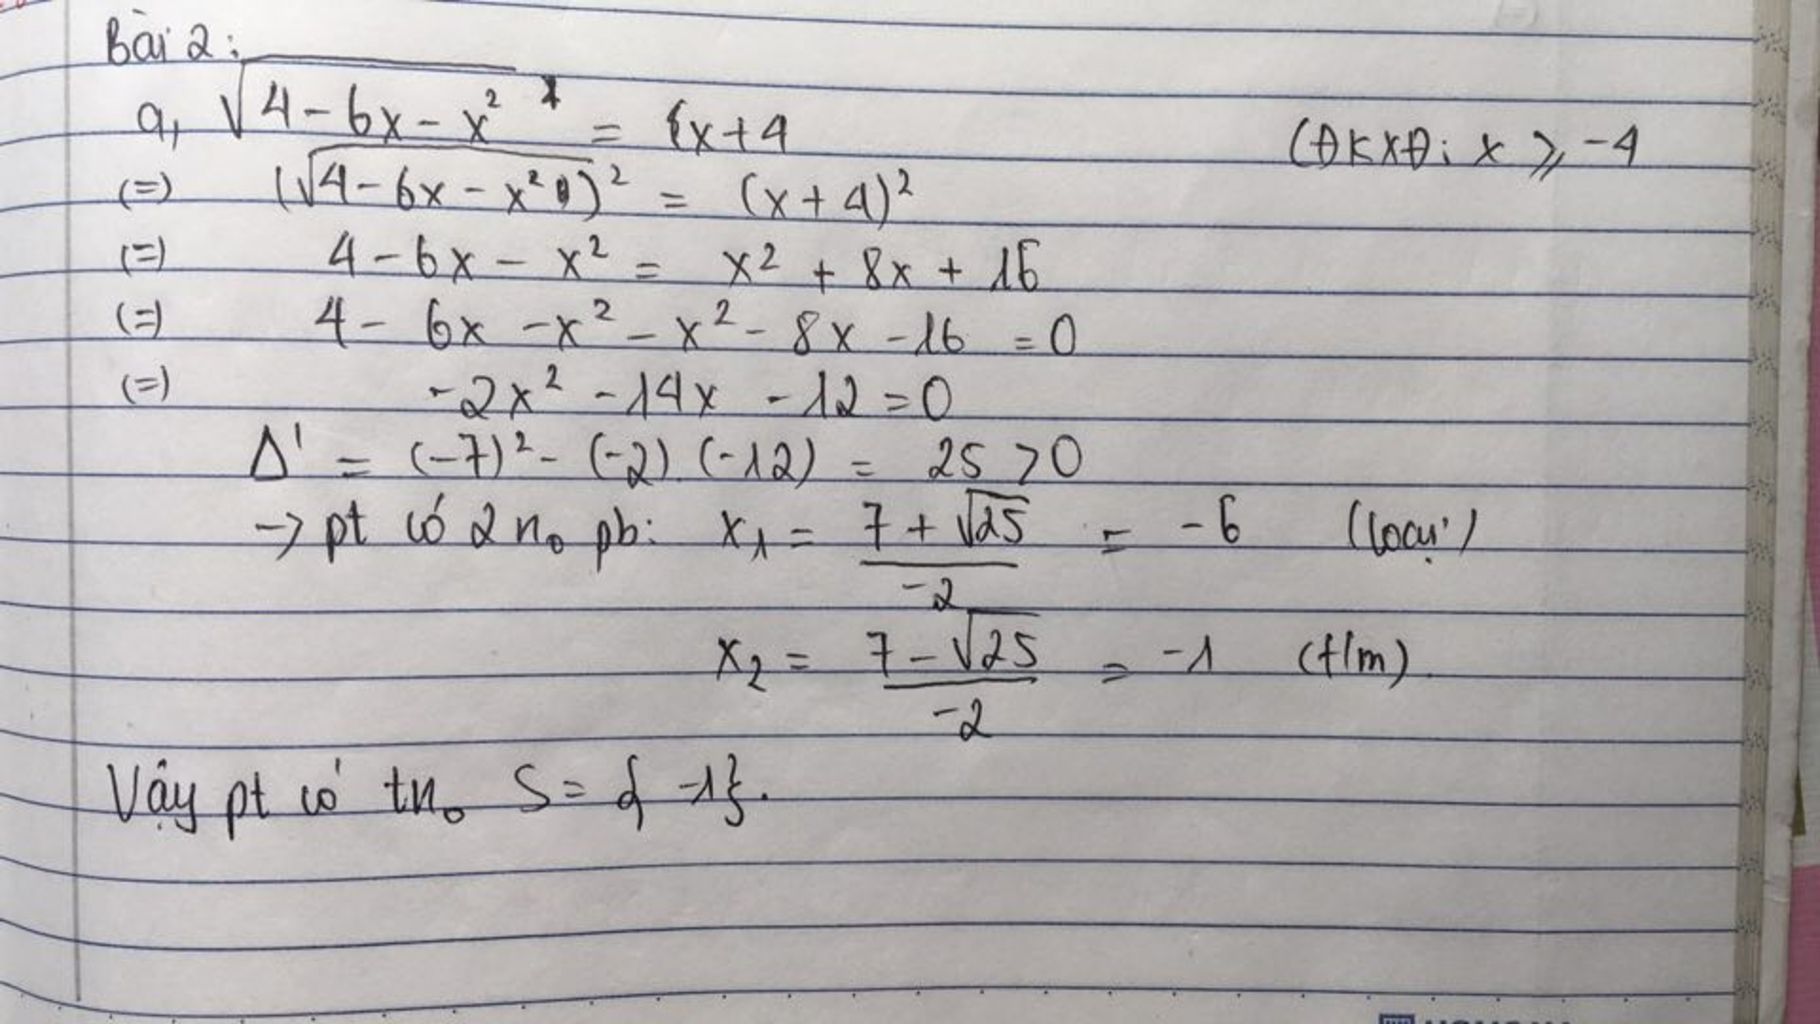 Bài 2:
a, √(4 - 6x - x²) = x + 4 (ĐKXĐ: x ≥ -4
(=) (√(4 - 6x - x²))² = (x + 4)²
(=) 4 - 6x - x² = x² + 8x + 16
(=) 4 - 6x - x² - x² - 8x - 16 = 0
(=) -2x² - 14x - 12 = 0
Δ' = (-7)² - (-2).(-12) = 25 > 0
→ pt có 2 n₀ pb: x₁ = (7 + √25)/(-2) = -6 (loại)
x₂ = (7 - √25)/(-2) = -1 (t/m).
Vậy pt có tn₀ S = { -1}.